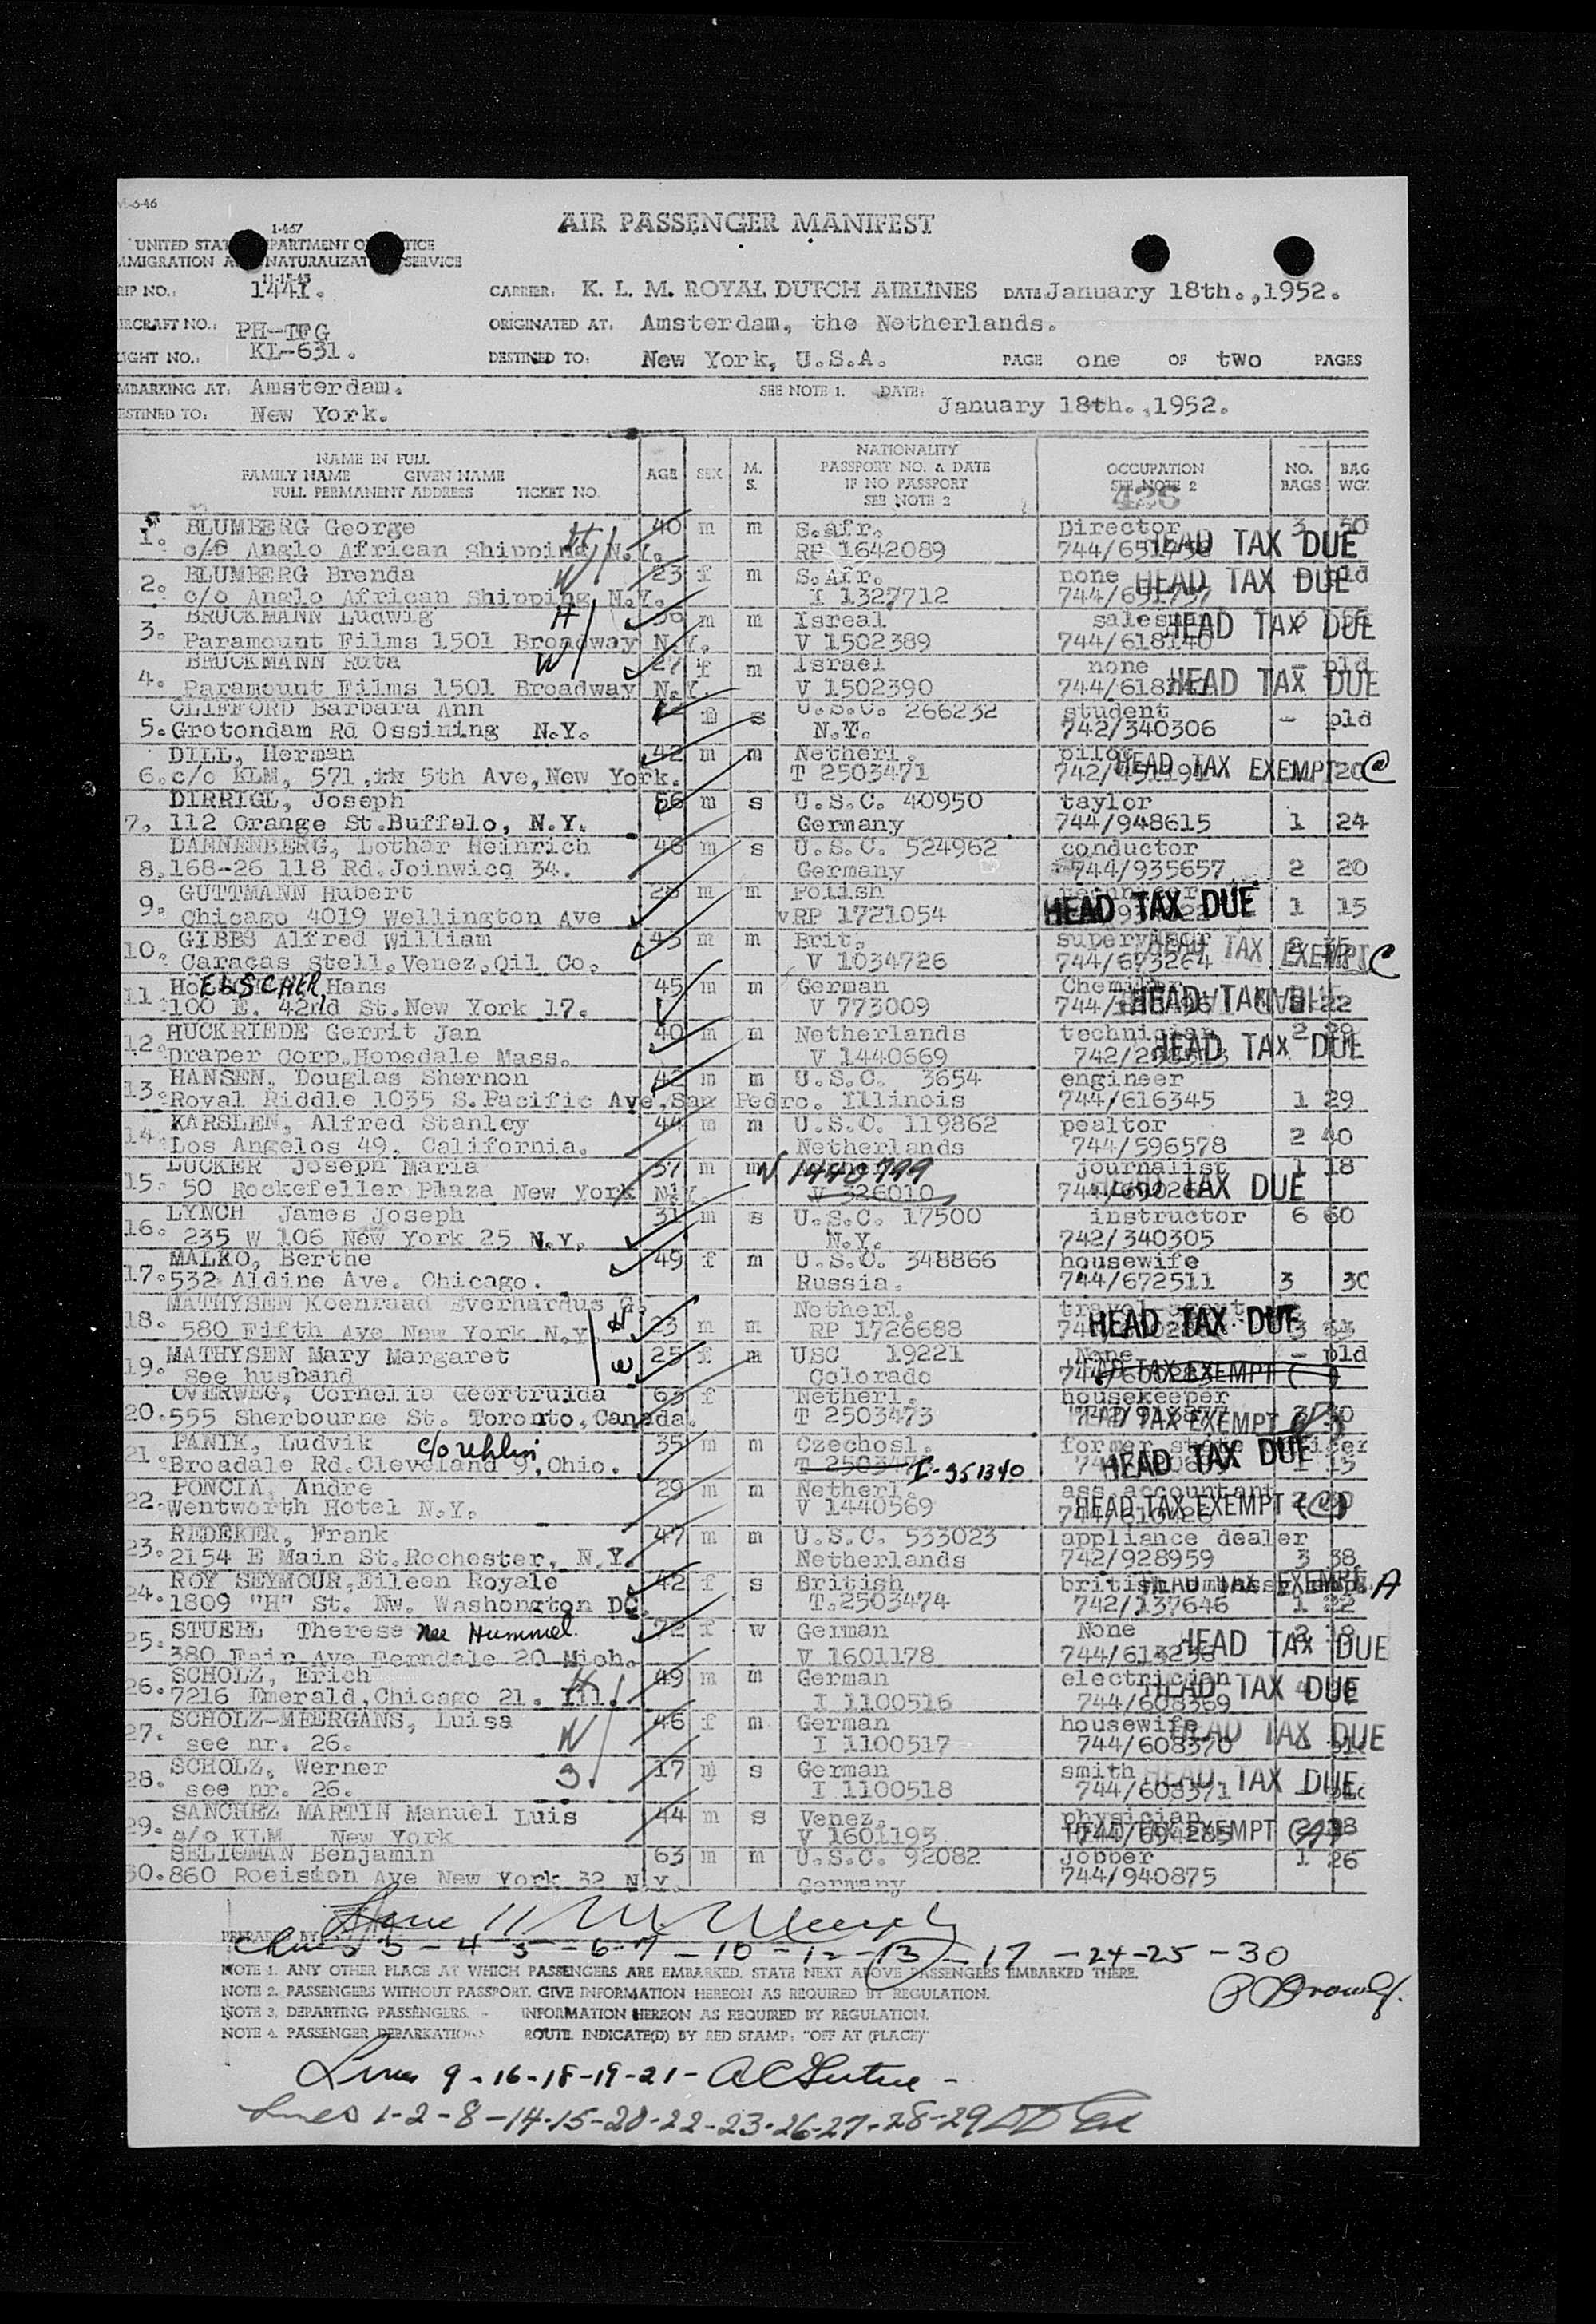 AIR PASSENGER MANIFEST
1-467
TRIP NO.: 1441. CARRIER: K. L. M. ROYAL DUTCH AIRLINES DATE: January 18th.,1952.
AIRCRAFT NO.: ORIGINATED AT: Amsterdam, the Netherlands.
KL-631. DESTINED TO: New York, U.S.A. PAGE one OF two PAGES
Amsterdam. SEE NOTE 1. DATE:
New York. January 18th.,1952.
NAME IN FULL NATIONALITY
FAMILY NAME GIVEN NAME AGE SEX M. S. PASSPORT NO. & DATE OCCUPATION NO. BAGS BAG
FULL PERMANENT ADDRESS TICKET NO. IF NO PASSPORT SEE NOTE 2
SEE NOTE 2 426
1. BLUMBERG George 40 m m S.afr. Director 3 30
c/o Anglo African Shipping N.Y. RP 1642089 HEAD TAX DUE
2. BLUMBERG Brenda 23 f m S.Afr. none HEAD TAX DUE
c/o Anglo African Shipping N.Y. I 1327712
3. BRUCKMANN Ludwig m m Isreal HEAD TAX DUE
Paramount Films 1501 Broadway N.Y. V 1502389 744/618140
4. BRUCKMANN Ruta 27 f m Israel none pld
Paramount Films 1501 Broadway N.Y. V 1502390 HEAD TAX DUE
CLIFFORD Barbara Ann s U.S.C. 266232 student – pld
5. Grotondam Rd Ossining N.Y. N.Y. 742/340306
DILL, Herman 42 m m Netherl. pilot
6. c/o KLM, 571, 5th Ave,New York. T 2503471 HEAD TAX EXEMPT C
DIRRIGL, Joseph 66 m s U.S.C. 40950 taylor
7, 112 Orange St.Buffalo, N.Y. Germany 744/948615 1 24
DANNENBERG, Lothar Heinrich 46 m s U.S.C. 524962 conductor
8,168-26 118 Rd.Joinwicq 34. Germany 744/935657 2 20
9. GUTTMANN Hubert m m Polish
Chicago 4019 Wellington Ave RP 1721054 HEAD TAX DUE 1 15
10. GIBBS Alfred William 43 m m Brit. supervisor
Caracas Stell.Venez.Oil Co. V 1034726 744/673264 HEAD TAX EXEMPT C
11 HoELSCHER Hans 45 m m German
100 E. 42nd St.New York 17. V 773009 HEAD TAX DUE 22
12. HUCKRIEDE Gerrit Jan 40 m m Netherlands technician
Draper Corp.Hopedale Mass. V 1440669 HEAD TAX DUE
HANSEN, Douglas Shernon 42 m m U.S.C. 3654 engineer
13. Royal Riddle 1035 S.Pacific Ave,San Pedro. Illinois 744/616345 1 29
KARSLEN, Alfred Stanley 44 m m U.S.C. 119862 pealtor
14. Los Angelos 49, California. Netherlands 744/596578 2 40
LUCKER Joseph Maria m m V 1440799 journalist 1 18
15. 50 Rockefeller Plaza New York N.Y. V 326010 TAX DUE
16. LYNCH James Joseph 31 m s U.S.C. 17500 instructor 6 60
235 W 106 New York 25 N.Y. N.Y. 742/340305
MALKO, Berthe 49 f m U.S.C. 348866 housewife
17. 532 Aldine Ave. Chicago. Russia. 744/672511 3 30
MATHYSEN Koenraad Everhardus G. Netherl.
18. 580 Fifth Ave New York N.Y. 23 m m RP 1726688 HEAD TAX DUE
19. MATHYSEN Mary Margaret 25 f m USC 19221 None – pld
See husband Colorado TAX EXEMPT ( )
OVERWEG, Cornelia Geertruida 63 f Netherl. housekeeper
20. 555 Sherbourne St. Toronto,Canada. T 2503473 HEAD TAX EXEMPT
21. PANIK, Ludvik c/o Uhlin 35 m m Czechosl.
Broadale Rd.Cleveland 9,Ohio. I-351340 HEAD TAX DUE
PONCIA, Andre 29 m m Netherl. ass.accountant
22. Wentworth Hotel N.Y. V 1440569 HEAD TAX EXEMPT (C)
REDEKER, Frank 47 m m U.S.C. 533023 appliance dealer
23. 2154 E Main St.Rochester, N.Y. Netherlands 742/928959 3 38
ROY SEYMOUR,Eileen Royale 42 f s British A
24. 1809 "H" St. Nw. Washongton DC. T.2503474 742/137646 1 22
25. STUEHL Therese nee Hummel. 72 f w German None
380 Fair Ave Ferndale 20 Mich. V 1601178 HEAD TAX DUE
SCHOLZ, Erich 49 m m German electrician
26. 7216 Emerald,Chicago 21. Ill. I 1100516 744/608369 HEAD TAX DUE
27. SCHOLZ-MEERGANS, Luisa 46 f m German housewife
see nr. 26. I 1100517 744/608370 HEAD TAX DUE
28. SCHOLZ, Werner 17 m s German smith
see nr. 26. I 1100518 744/608371 HEAD TAX DUE
29. SANCHEZ MARTIN Manuel Luis 44 m s Venez. physician
c/o KLM New York V 1601193 EXEMPT
SELIGMAN Benjamin 63 m m U.S.C. 92082 Jobber 1 26
30. 860 Roeision Ave New York 32 N.Y. Germany 744/940875
Lines 3 - 4 5 - 6-7 - 10 - 12 - 13 - 17 - 24-25 - 30
NOTE 1. ANY OTHER PLACE AT WHICH PASSENGERS ARE EMBARKED. STATE NEXT ABOVE PASSENGERS EMBARKED THERE.
NOTE 2. PASSENGERS WITHOUT PASSPORT, GIVE INFORMATION HEREON AS REQUIRED BY REGULATION.
NOTE 3. DEPARTING PASSENGERS. - INFORMATION HEREON AS REQUIRED BY REGULATION.
NOTE 4. PASSENGER DEBARKATION ROUTE. INDICATE(D) BY RED STAMP: "OFF AT (PLACE)"
Lines 9 - 16 - 18 - 19 - 21 -
Lines 1-2-8-14-15-20-22-23-26-27-28-29